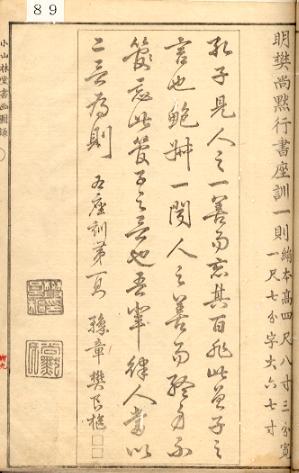 89
明樊尚默行書座訓一則
絹本高四尺八寸三分寬
一尺七分字大六七寸
孔子見人之一善而忘其百非此曾子之
言也鮑叔一聞人之善而終身不
忘此管子之言也吾輩律人當以
二言為則 右座訓第一 豫章樊良樞□□
小山林堂書画圖録